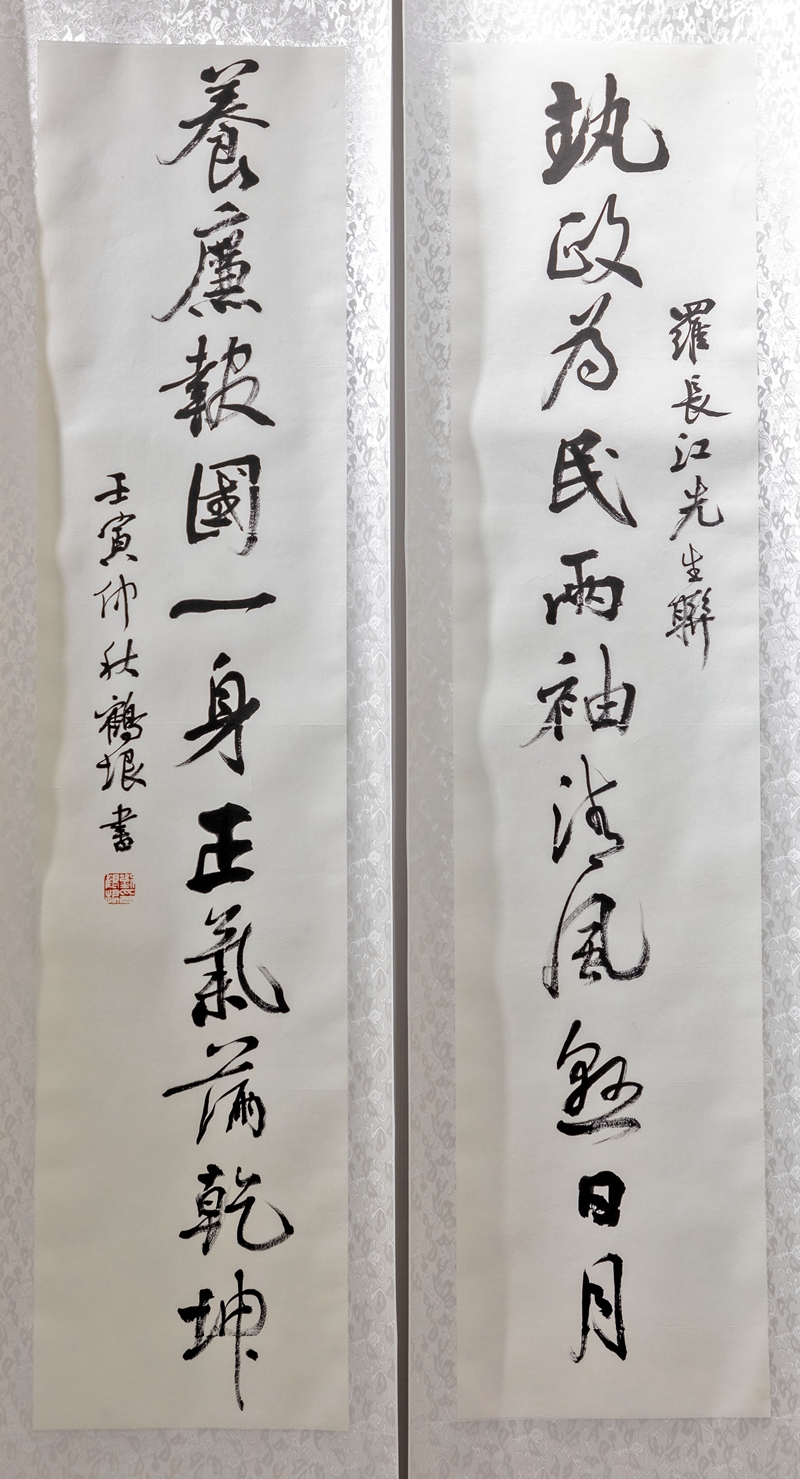 羅長江先生聯
執政為民兩袖清風懸日月
養廉報國一身正氣滿乾坤
壬寅仲秋鶴垠書